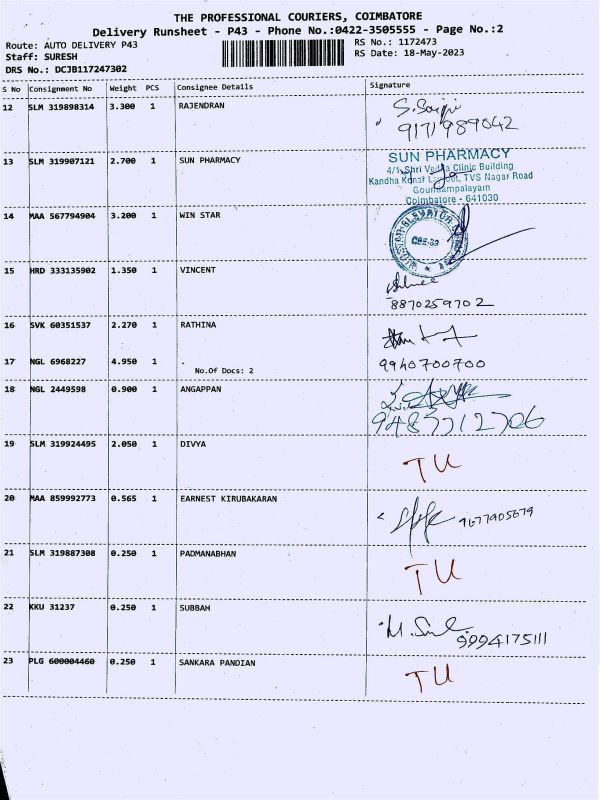 THE PROFESSIONAL COURIERS, COIMBATORE
Delivery Runsheet - P43 - Phone No.:0422-3505555 - Page No.:2
Route: AUTO DELIVERY P43 RS No.: 1172473
Staff: SURESH RS Date: 18-May-2023
DRS No.: DCJB117247302
S No Consignment No Weight PCS Consignee Details Signature
12 SLM 319898314 3.300 1 RAJENDRAN
13 SLM 319907121 2.700 1 SUN PHARMACY SUN PHARMACY
4/1, Shri Clinic Building
Kandha TVS Nagar Road
Coimbatore - 641030
14 MAA 567794904 3.200 1 WIN STAR
CBE-39
15 HRD 333135902 1.350 1 VINCENT
8870259702
16 SVK 60351537 2.270 1 RATHINA
17 NGL 6968227 4.950 1 9940700700
No.Of Docs: 2
18 NGL 2449598 0.900 1 ANGAPPAN
19 SLM 319924495 2.050 1 DIVYA TU
20 MAA 859992773 0.565 1 EARNEST KIRUBAKARAN 9677905679
21 SLM 319887308 0.250 1 PADMANABHAN TU
22 KKU 31237 0.250 1 SUBBAH
9994175111
23 PLG 600004460 0.250 1 SANKARA PANDIAN TU